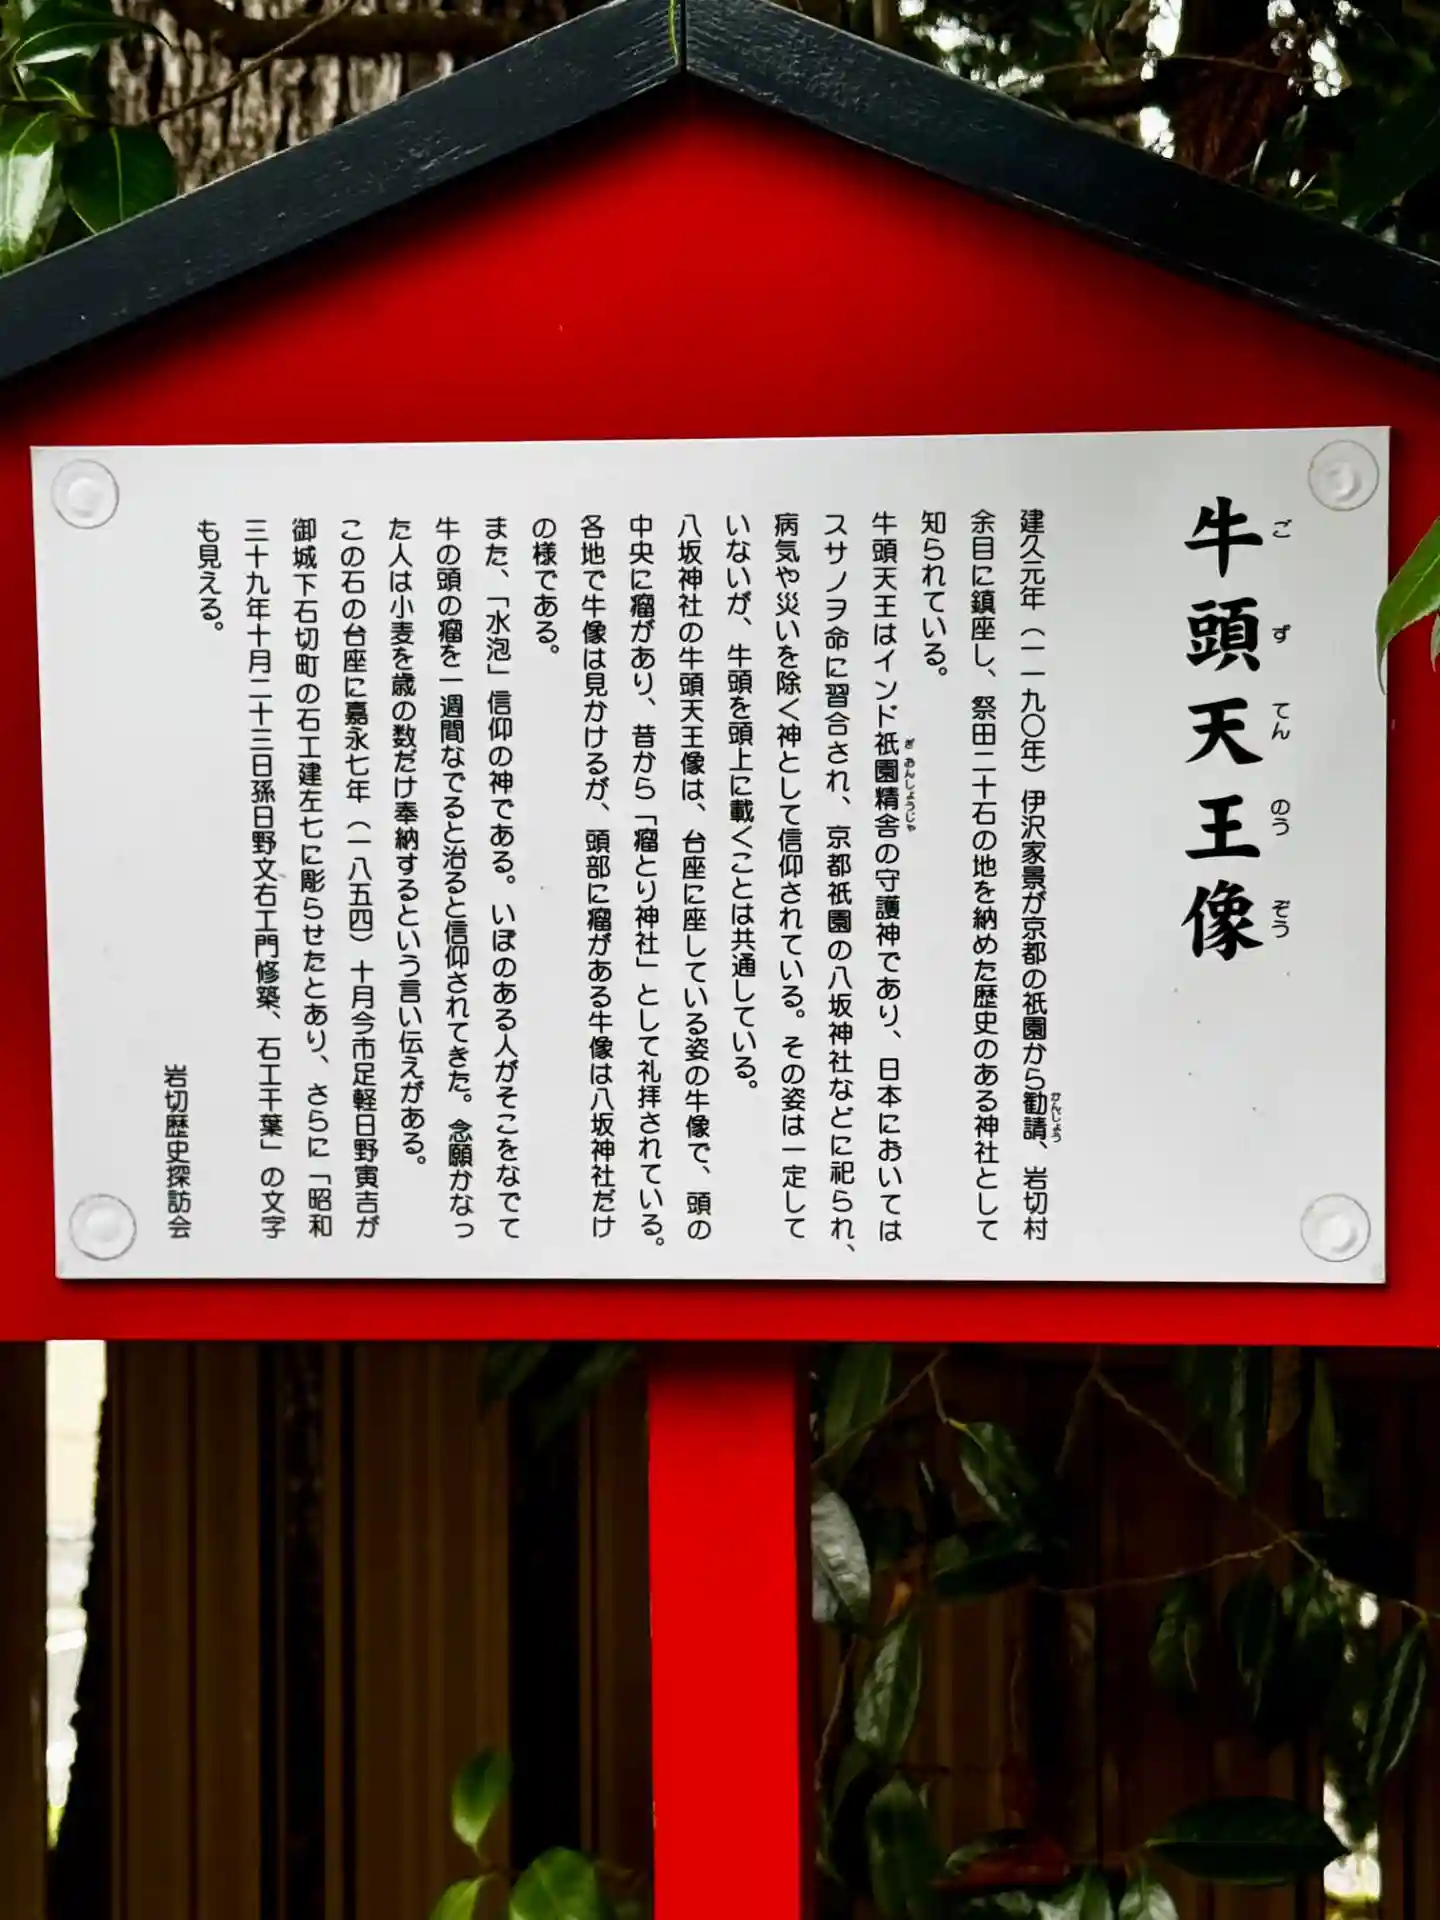 牛頭天王像
ごずてんのうぞう
建久元年（一一九〇年）伊沢家景が京都の祇園から勧請、岩切村
かんじょう
余目に鎮座し、祭田二十石の地を納めた歴史のある神社として
知られている。
牛頭天王はインド祇園精舎の守護神であり、日本においては
ぎおんしょうじゃ
スサノヲ命に習合され、京都祇園の八坂神社などに祀られ、
病気や災いを除く神として信仰されている。その姿は一定して
いないが、牛頭を頭上に載くことは共通している。
八坂神社の牛頭天王像は、台座に座している姿の牛像で、頭の
中央に瘤があり、昔から「瘤とり神社」として礼拝されている。
各地で牛像は見かけるが、頭部に瘤がある牛像は八坂神社だけ
の様である。
また、「水泡」信仰の神である。いぼのある人がそこをなでて
牛の頭の瘤を一週間なでると治ると信仰されてきた。念願かなっ
た人は小麦を歳の数だけ奉納するという言い伝えがある。
この石の台座に嘉永七年（一八五四）十月今市足軽日野寅吉が
御城下石切町の石工建左七に彫らせたとあり、さらに「昭和
三十九年十月二十三日孫日野文右エ門修築、石工千葉」の文字
も見える。
岩切歴史探訪会